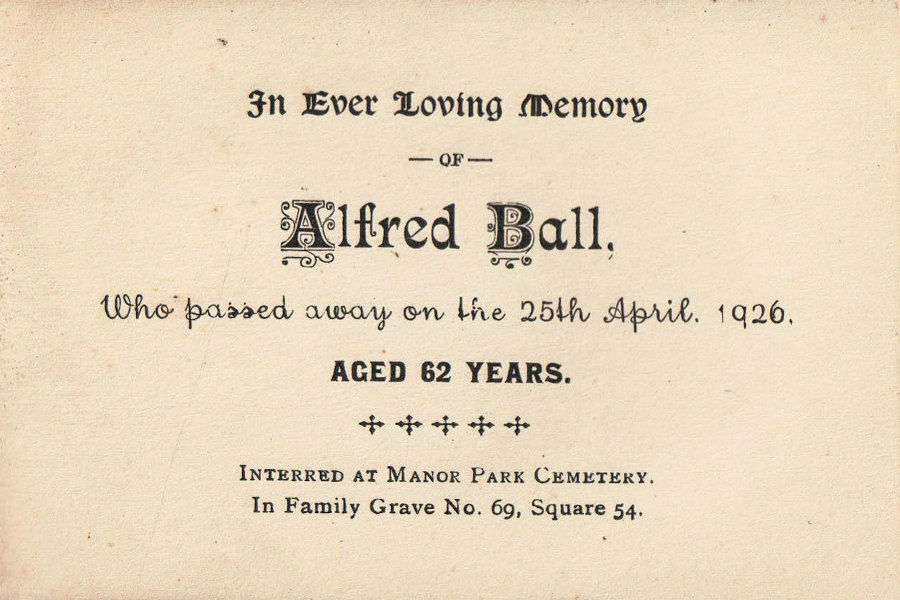 In Ever Loving Memory
— OF —
Alfred Ball,
Who passed away on the 25th April. 1926.
AGED 62 YEARS.
INTERRED AT MANOR PARK CEMETERY.
In Family Grave No. 69, Square 54.